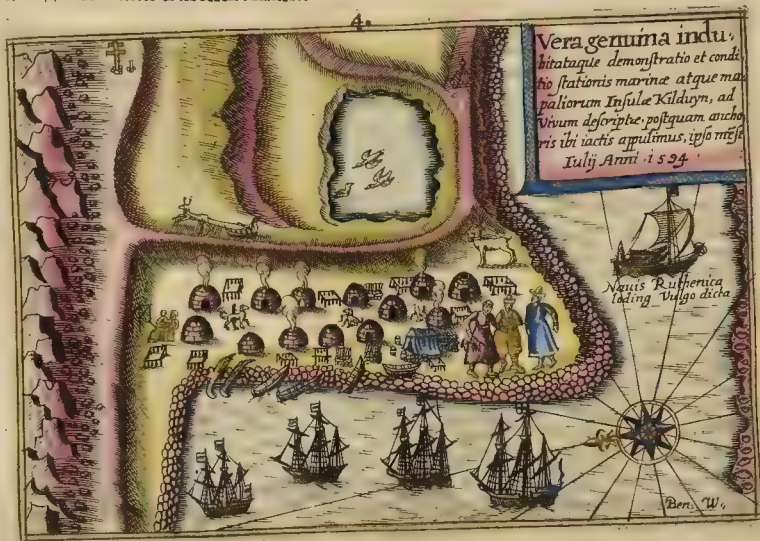 4.
Vera genuina indu:
bitataque demonstratio et condi
tio stationis marinæ atque ma
paliorum Insulæ Kilduyn, ad
vivum descriptæ, postquam ancho
ris ibi iactis appulimus, ipso mẽse
Iulij Anni 1594.
Navis Ruthenica
loding Vulgo dicta
Ben: W: